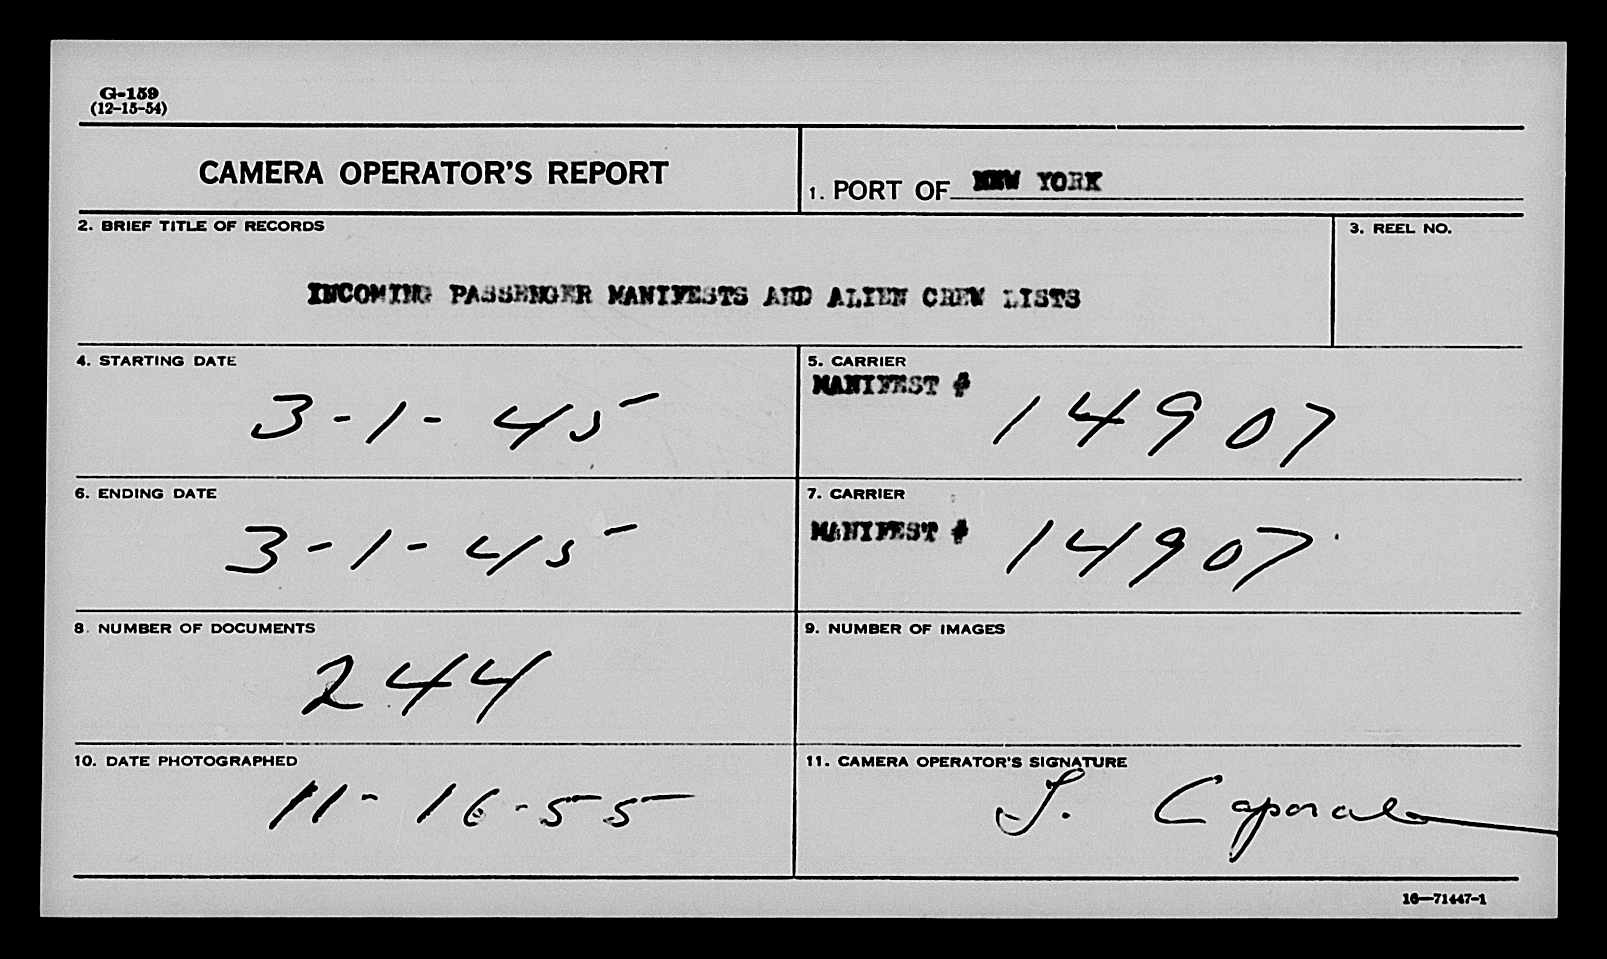 G-159
(12-15-54)
CAMERA OPERATOR'S REPORT
1. PORT OF NEW YORK
2. BRIEF TITLE OF RECORDS
3. REEL NO.
INCOMING PASSENGER MANIFESTS AND ALIEN CREW LISTS
4. STARTING DATE
3-1-45
5. CARRIER
MANIFEST # 14907
6. ENDING DATE
3-1-45
7. CARRIER
MANIFEST # 14907
8. NUMBER OF DOCUMENTS
244
9. NUMBER OF IMAGES
10. DATE PHOTOGRAPHED
11-16-55
11. CAMERA OPERATOR'S SIGNATURE
J. Caporale
16—71447-1